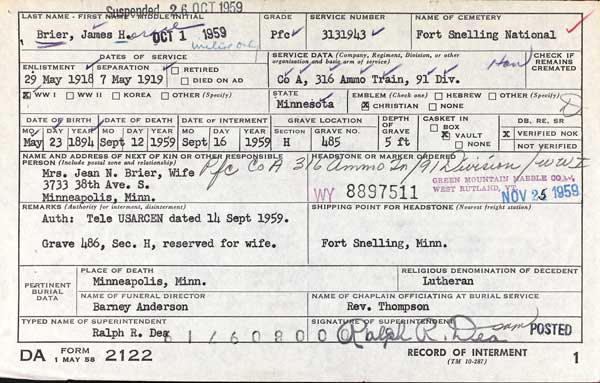 Suspended 26 OCT 1959
LAST NAME - FIRST NAME - MIDDLE INITIAL GRADE SERVICE NUMBER NAME OF CEMETERY
Brier, James H. OCT 1 1959 Pfc 3131943 Fort Snelling National
DATES OF SERVICE SERVICE DATA (Company, Regiment, Division, or other organisation and basic arm of service) CHECK IF REMAINS CREMATED
ENLISTMENT SEPARATION RETIRED
29 May 1918 7 May 1919 DIED ON AD Co A, 316 Ammo Train, 91 Div.
X WW I WW II KOREA OTHER (Specify) STATE EMBLEM (Check one) HEBREW OTHER (Specify)
Minnesota X CHRISTIAN NONE
DATE OF BIRTH DATE OF DEATH DATE OF INTERMENT GRAVE LOCATION DEPTH OF GRAVE CASKET IN DB, RE, SR
MO. DAY YEAR MO. DAY YEAR MO. DAY YEAR SECTION GRAVE BOX X VERIFIED NOK
May 23 1894 Sept 12 1959 Sept 16 1959 H 485 5 ft X VAULT NONE NOT VERIFIED
NAME AND ADDRESS OF NEXT OF KIN OR OTHER RESPONSIBLE PERSON (Include postal zone and relationship) HEADSTONE OR MARKER ORDERED
Pfc Co A 316 Ammo Tn/91 Division/WWI
Mrs. Jean N. Brier, Wife
3733 38th Ave. S.
Minneapolis, Minn.
WY 8897511
GREEN MOUNTAIN MARBLE CO.
WEST RUTLAND, VT.
NOV 25 1959
REMARKS (Authority for interment, disinterment) SHIPPING POINT FOR HEADSTONE (Nearest freight station)
Auth: Tele USARCEN dated 14 Sept 1959.
Grave 486, Sec. H, reserved for wife. Fort Snelling, Minn.
PERTINENT BURIAL DATA PLACE OF DEATH RELIGIOUS DENOMINATION OF DECEDENT
Minneapolis, Minn. Lutheran
NAME OF FUNERAL DIRECTOR NAME OF CHAPLAIN OFFICIATING AT BURIAL SERVICE
Barney Anderson Rev. Thompson
TYPED NAME OF SUPERINTENDENT SIGNATURE OF SUPERINTENDENT
Ralph R. Dea Ralph R. Dea POSTED
DA FORM 1 MAY 58 2122 RECORD OF INTERMENT (TM 10-287) 1